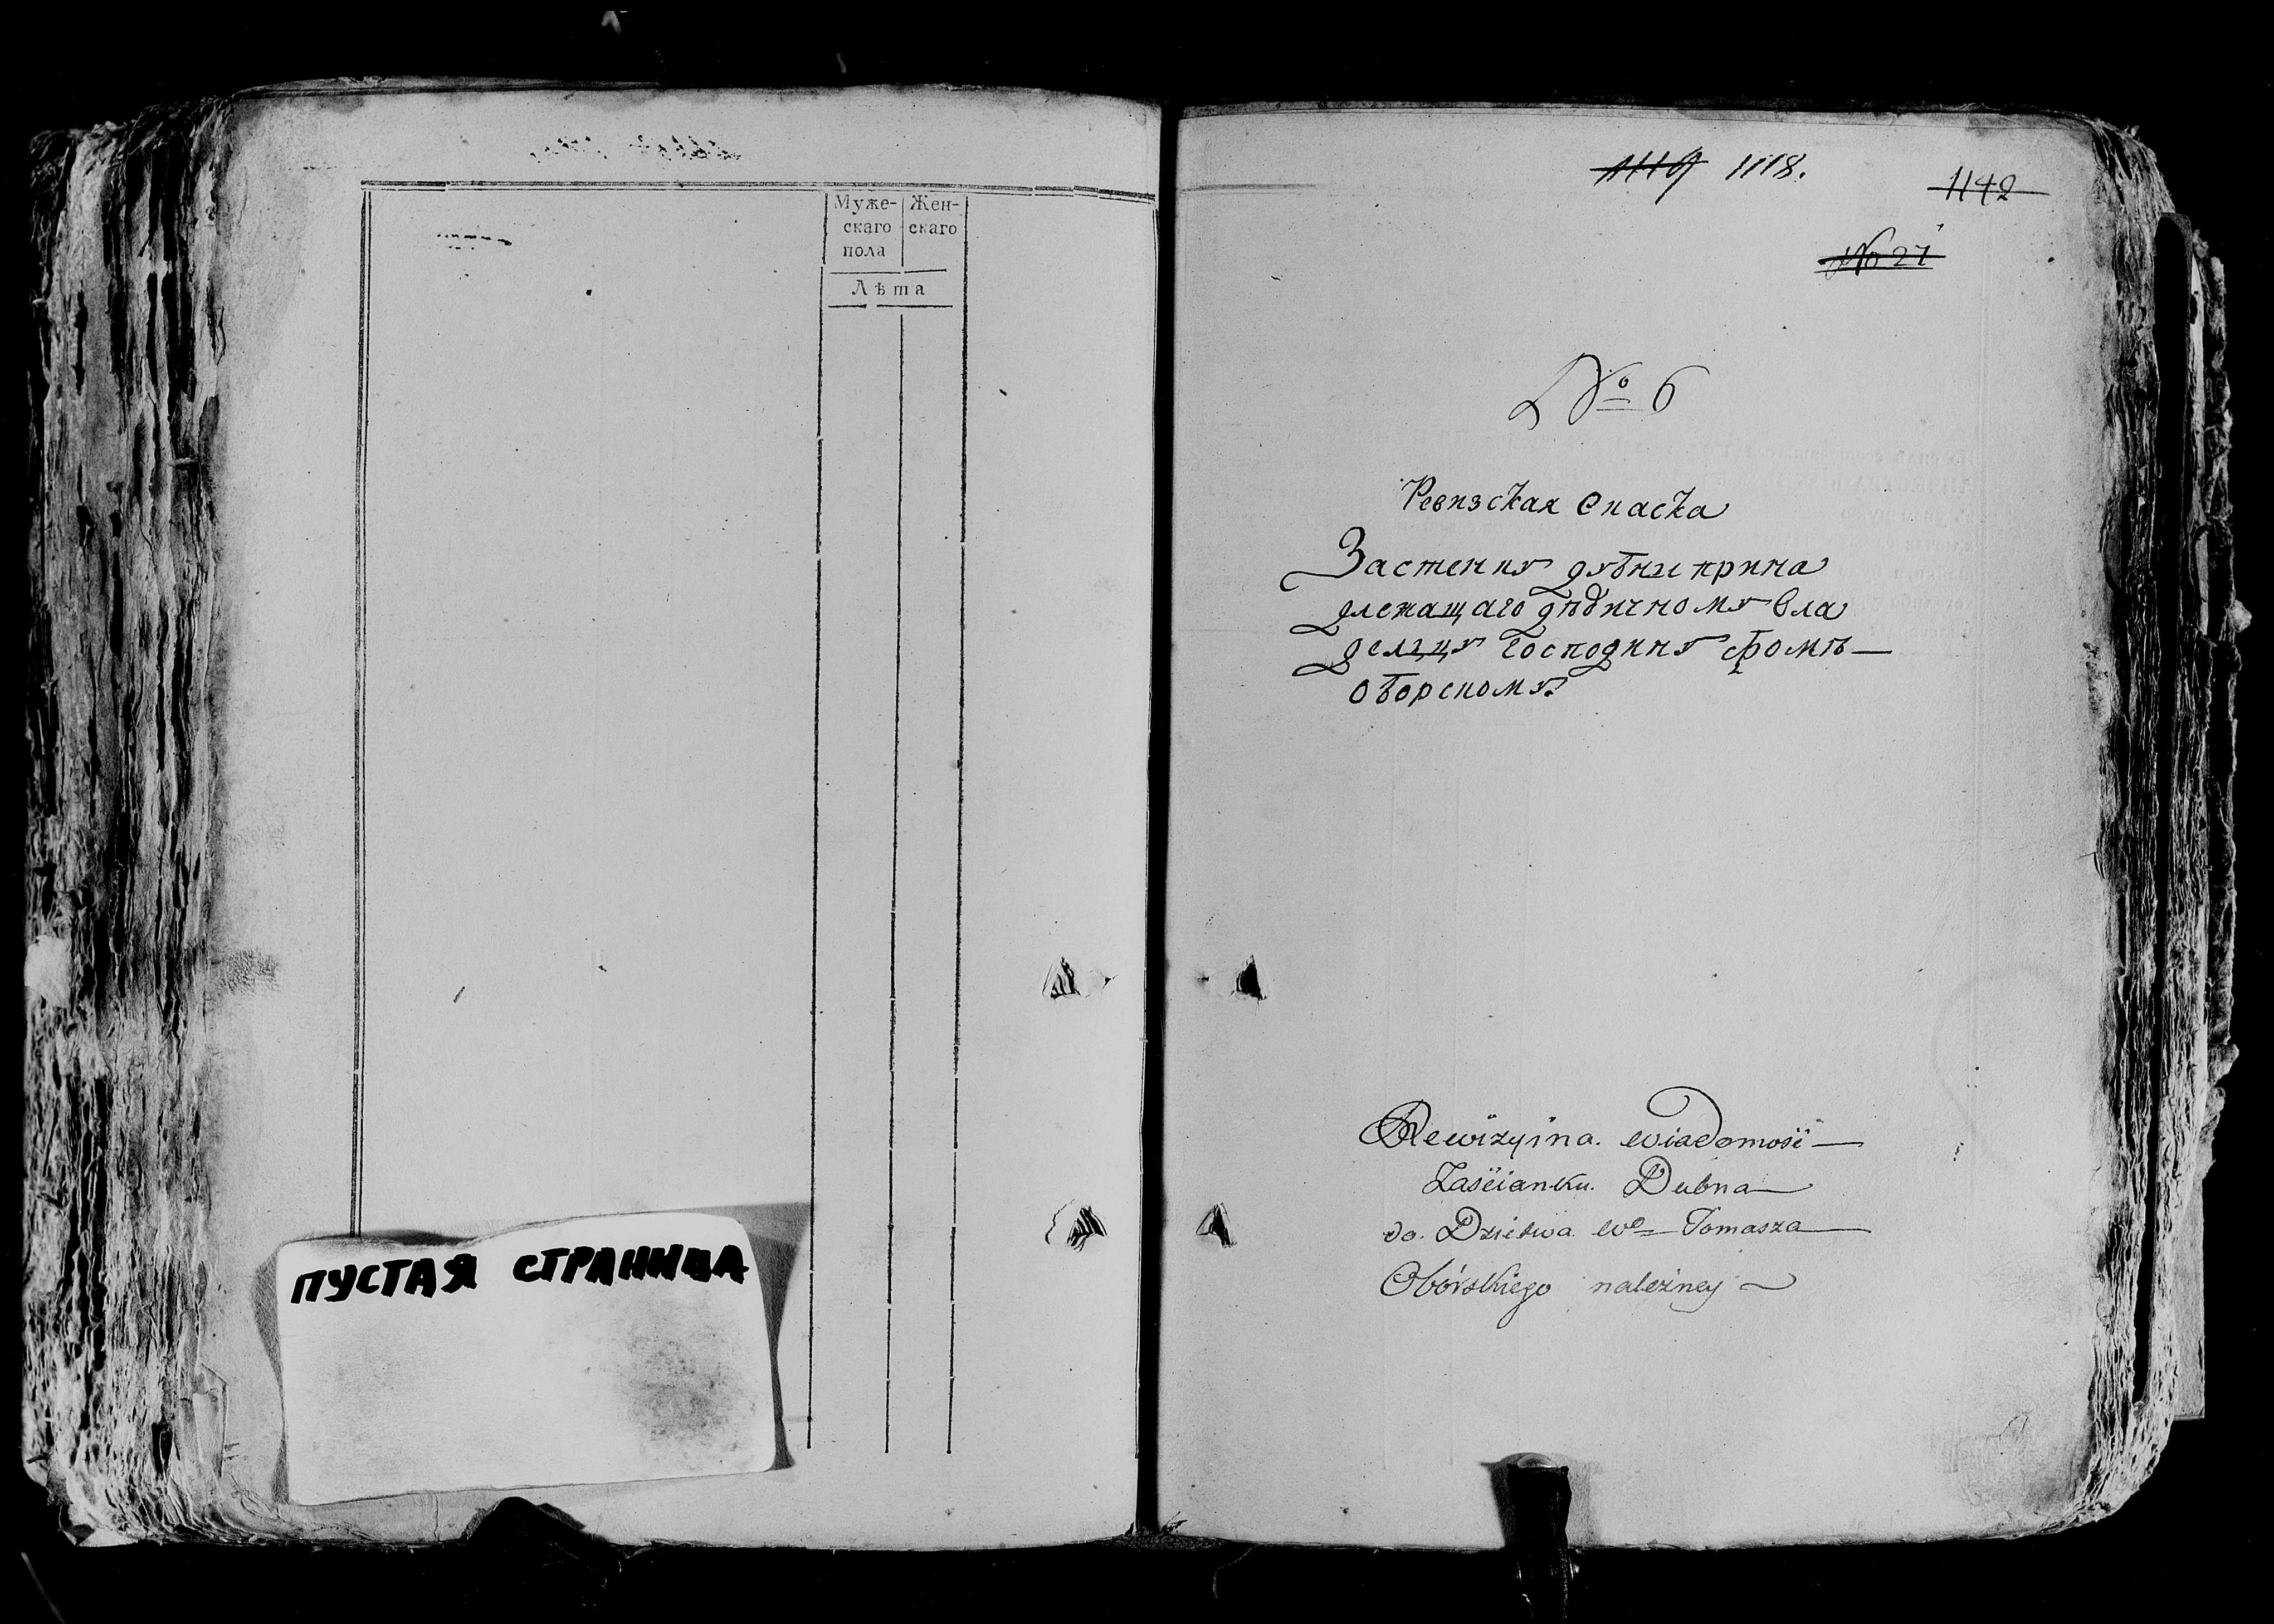 Муже-
скаго
пола
Жен-
скаго
Лѣта
ПУСТАЯ СТРАНИЦА
1119 1118.
1142
No 27
№ 6
Ревизская Скаска
Застенку дубны прина
длежащаго дѣдичному вла
дельцу Господину Фомѣ
оборскому.
Rewizyina wiadomość
Zaścianku Dubna
do Dziedzictwa Wo Tomasza
Obórskiego należney